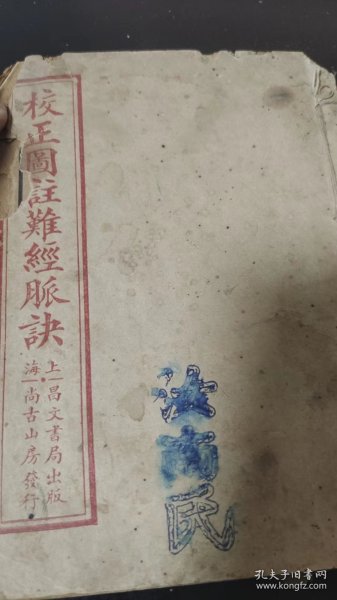 校正圖註難經脈訣
上海
昌文書局出版
尚古山房發行
孔夫子旧书网
www.kongfz.com